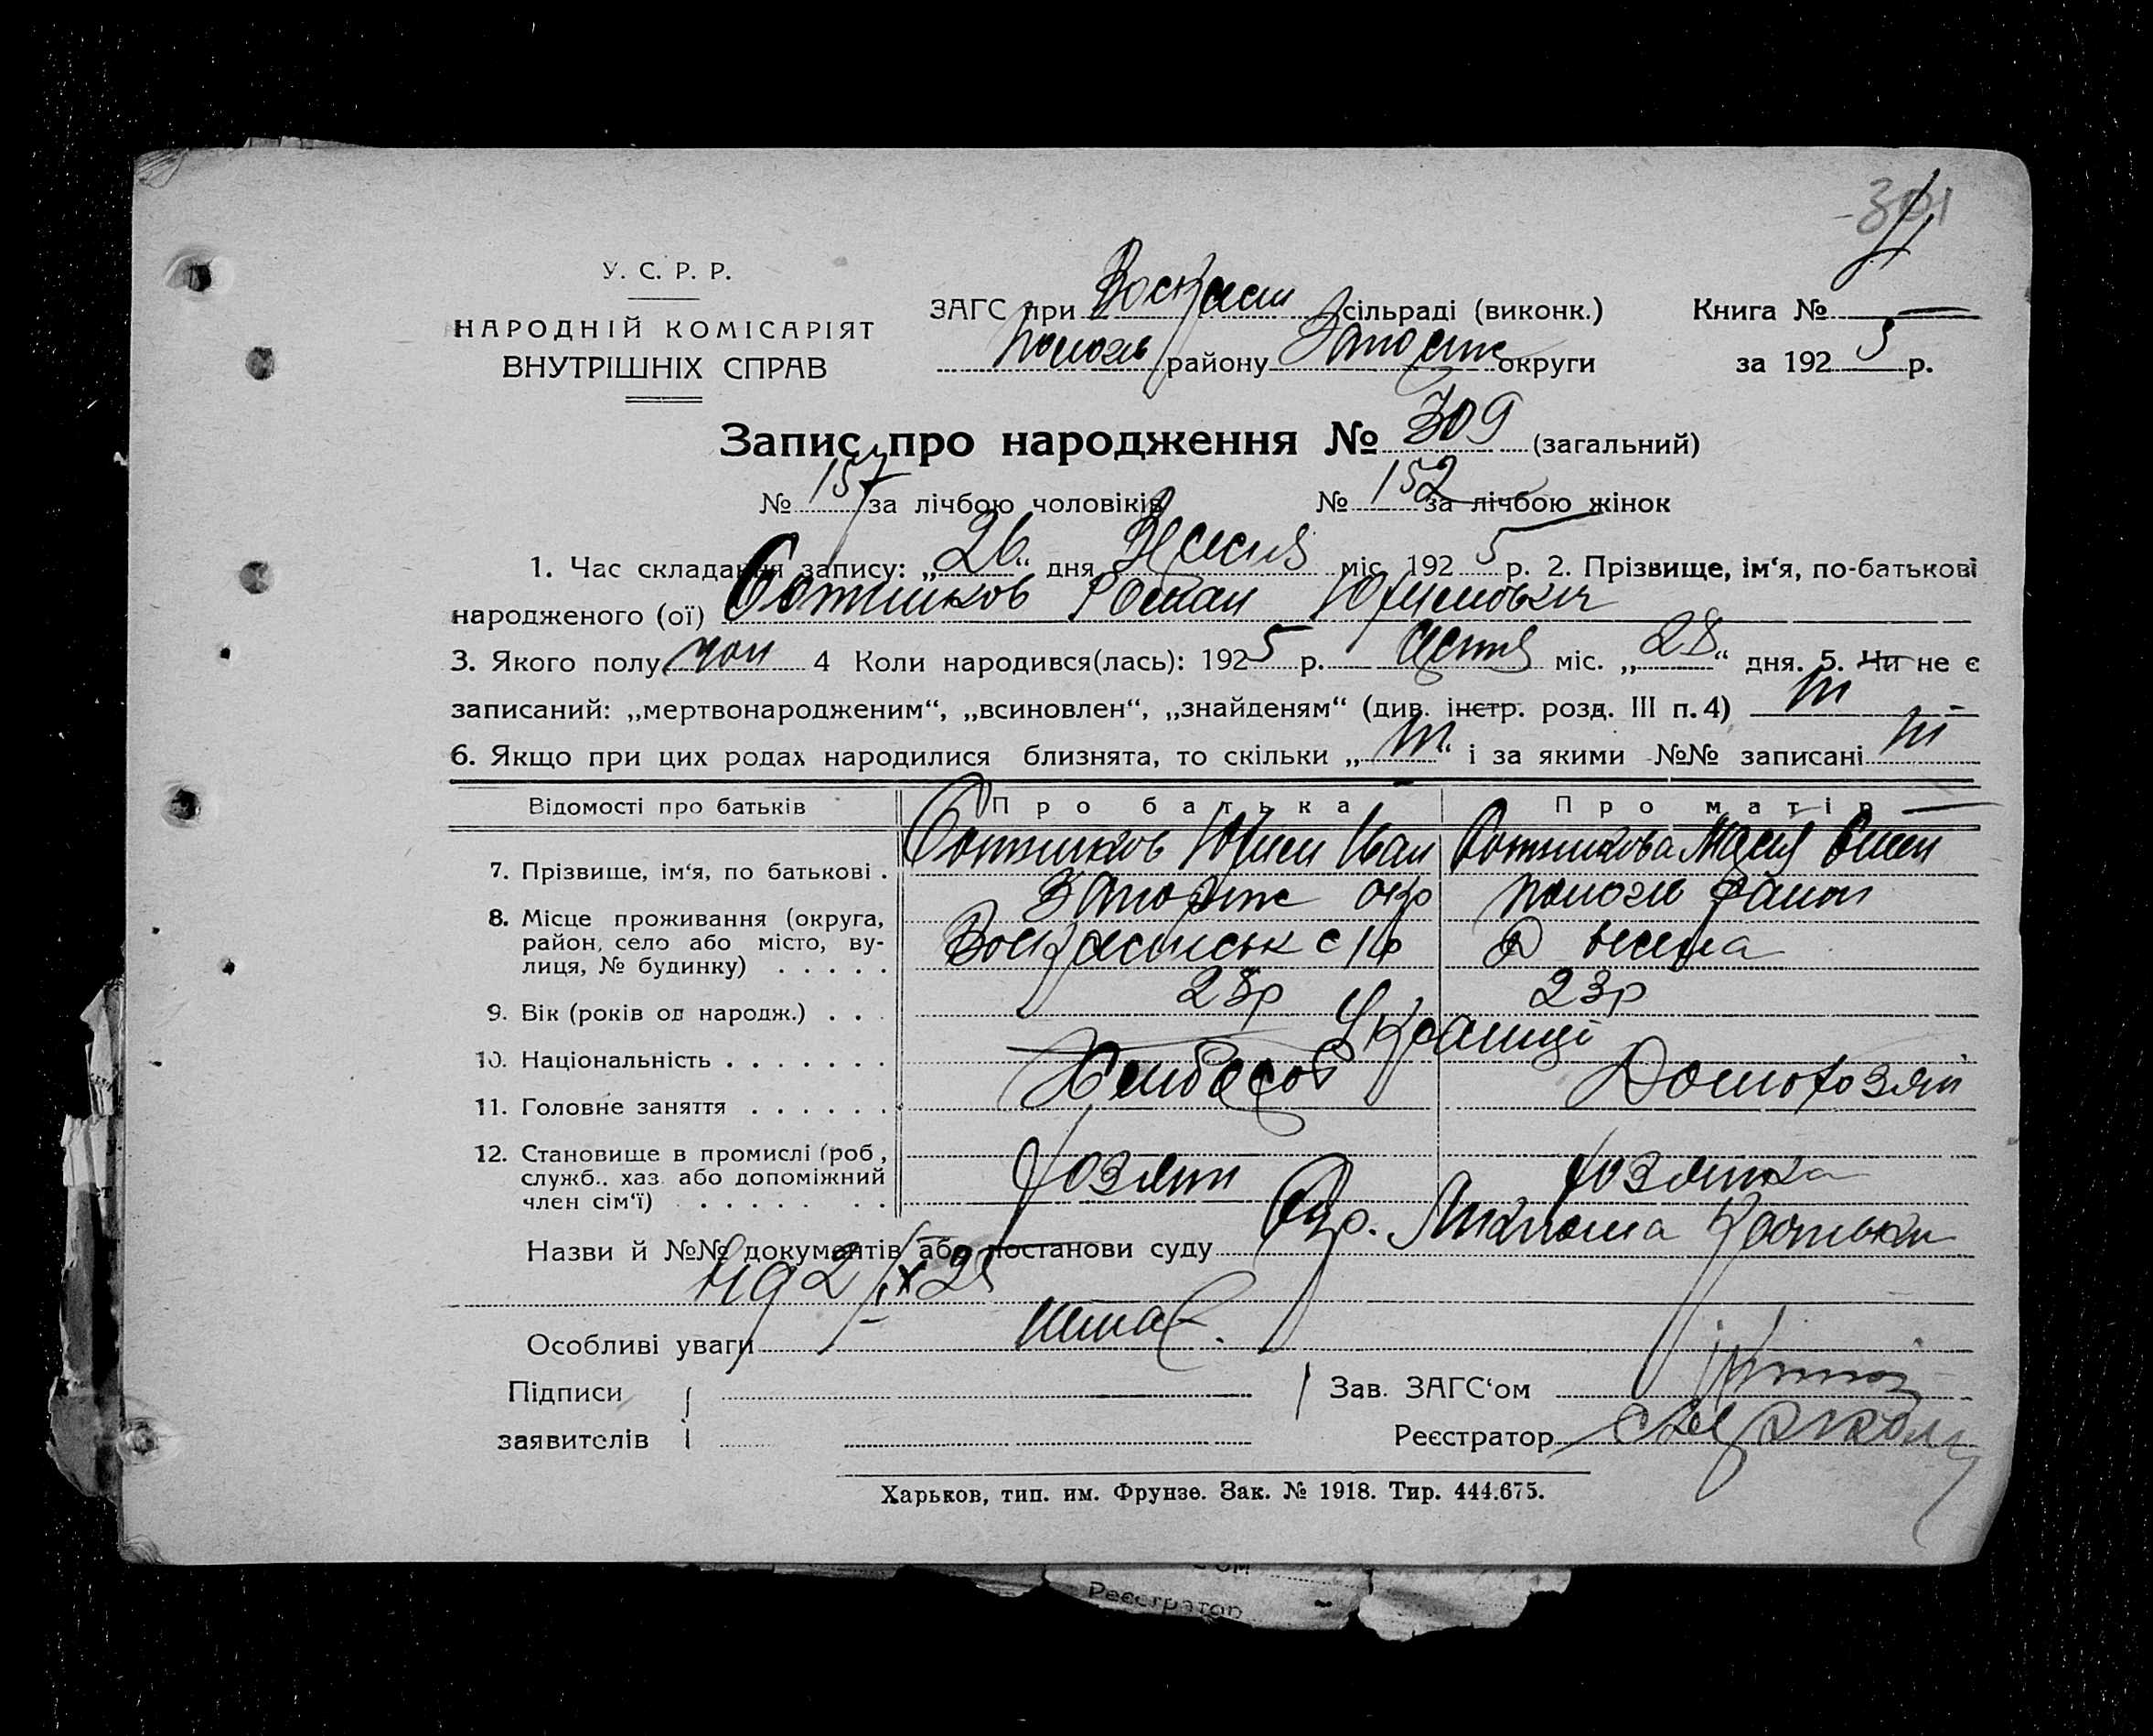 301
У. С. Р. Р.
НАРОДНІЙ КОМІСАРІЯТ
ВНУТРІШНІХ СПРАВ
ЗАГС при Воскресен сільраді (виконк.)
Пологв району Запоріж округи
Книга № —
за 1925 р.
Запис про народження № 309 (загальний)
№ 157 за лічбою чоловіків № 152 за лічбою жінок
1. Час складання запису: „26“ дня міс. 1925 р. 2. Прізвище, ім‘я, по-батькові
народженого (ої) Сотников Роман
3. Якого полу чол 4 Коли народився(лась): 1925 р. міс. „28“ дня. 5. Чи не є
записаний: „мертвонародженим“, „всиновлен“, „знайденям“ (див. інстр. розд. III п. 4) ні
6. Якщо при цих родах народилися близнята, то скільки „ні“ і за якими №№ записані ні
Відомості про батьків Про батька Про матір
7. Прізвище, ім‘я, по батькові . Сотников Іван Сотникова Марія
8. Місце проживання (округа, Запоріж окр район
район, село або місто, ву- Воскресенськ с/р
лиця, № будинку) . . . . .
9. Вік (років од народж.) . . . 28р 23р
10. Національність . . . . . . . Украинці
11. Головне заняття . . . . . . . Хлібороб Домохозяй
12. Становище в промислі (роб,
служб.. хаз. або допоміжний хозяин хозяйка
член сім‘ї) . . . . . . .
Назви й №№ документів або постанови суду
Особливі уваги нема
Підписи
заявителів
Зав. ЗАГС‘ом
Реєстратор
Харьков, тип. им. Фрунзе. Зак. № 1918. Тир. 444.675.
Реєстратор